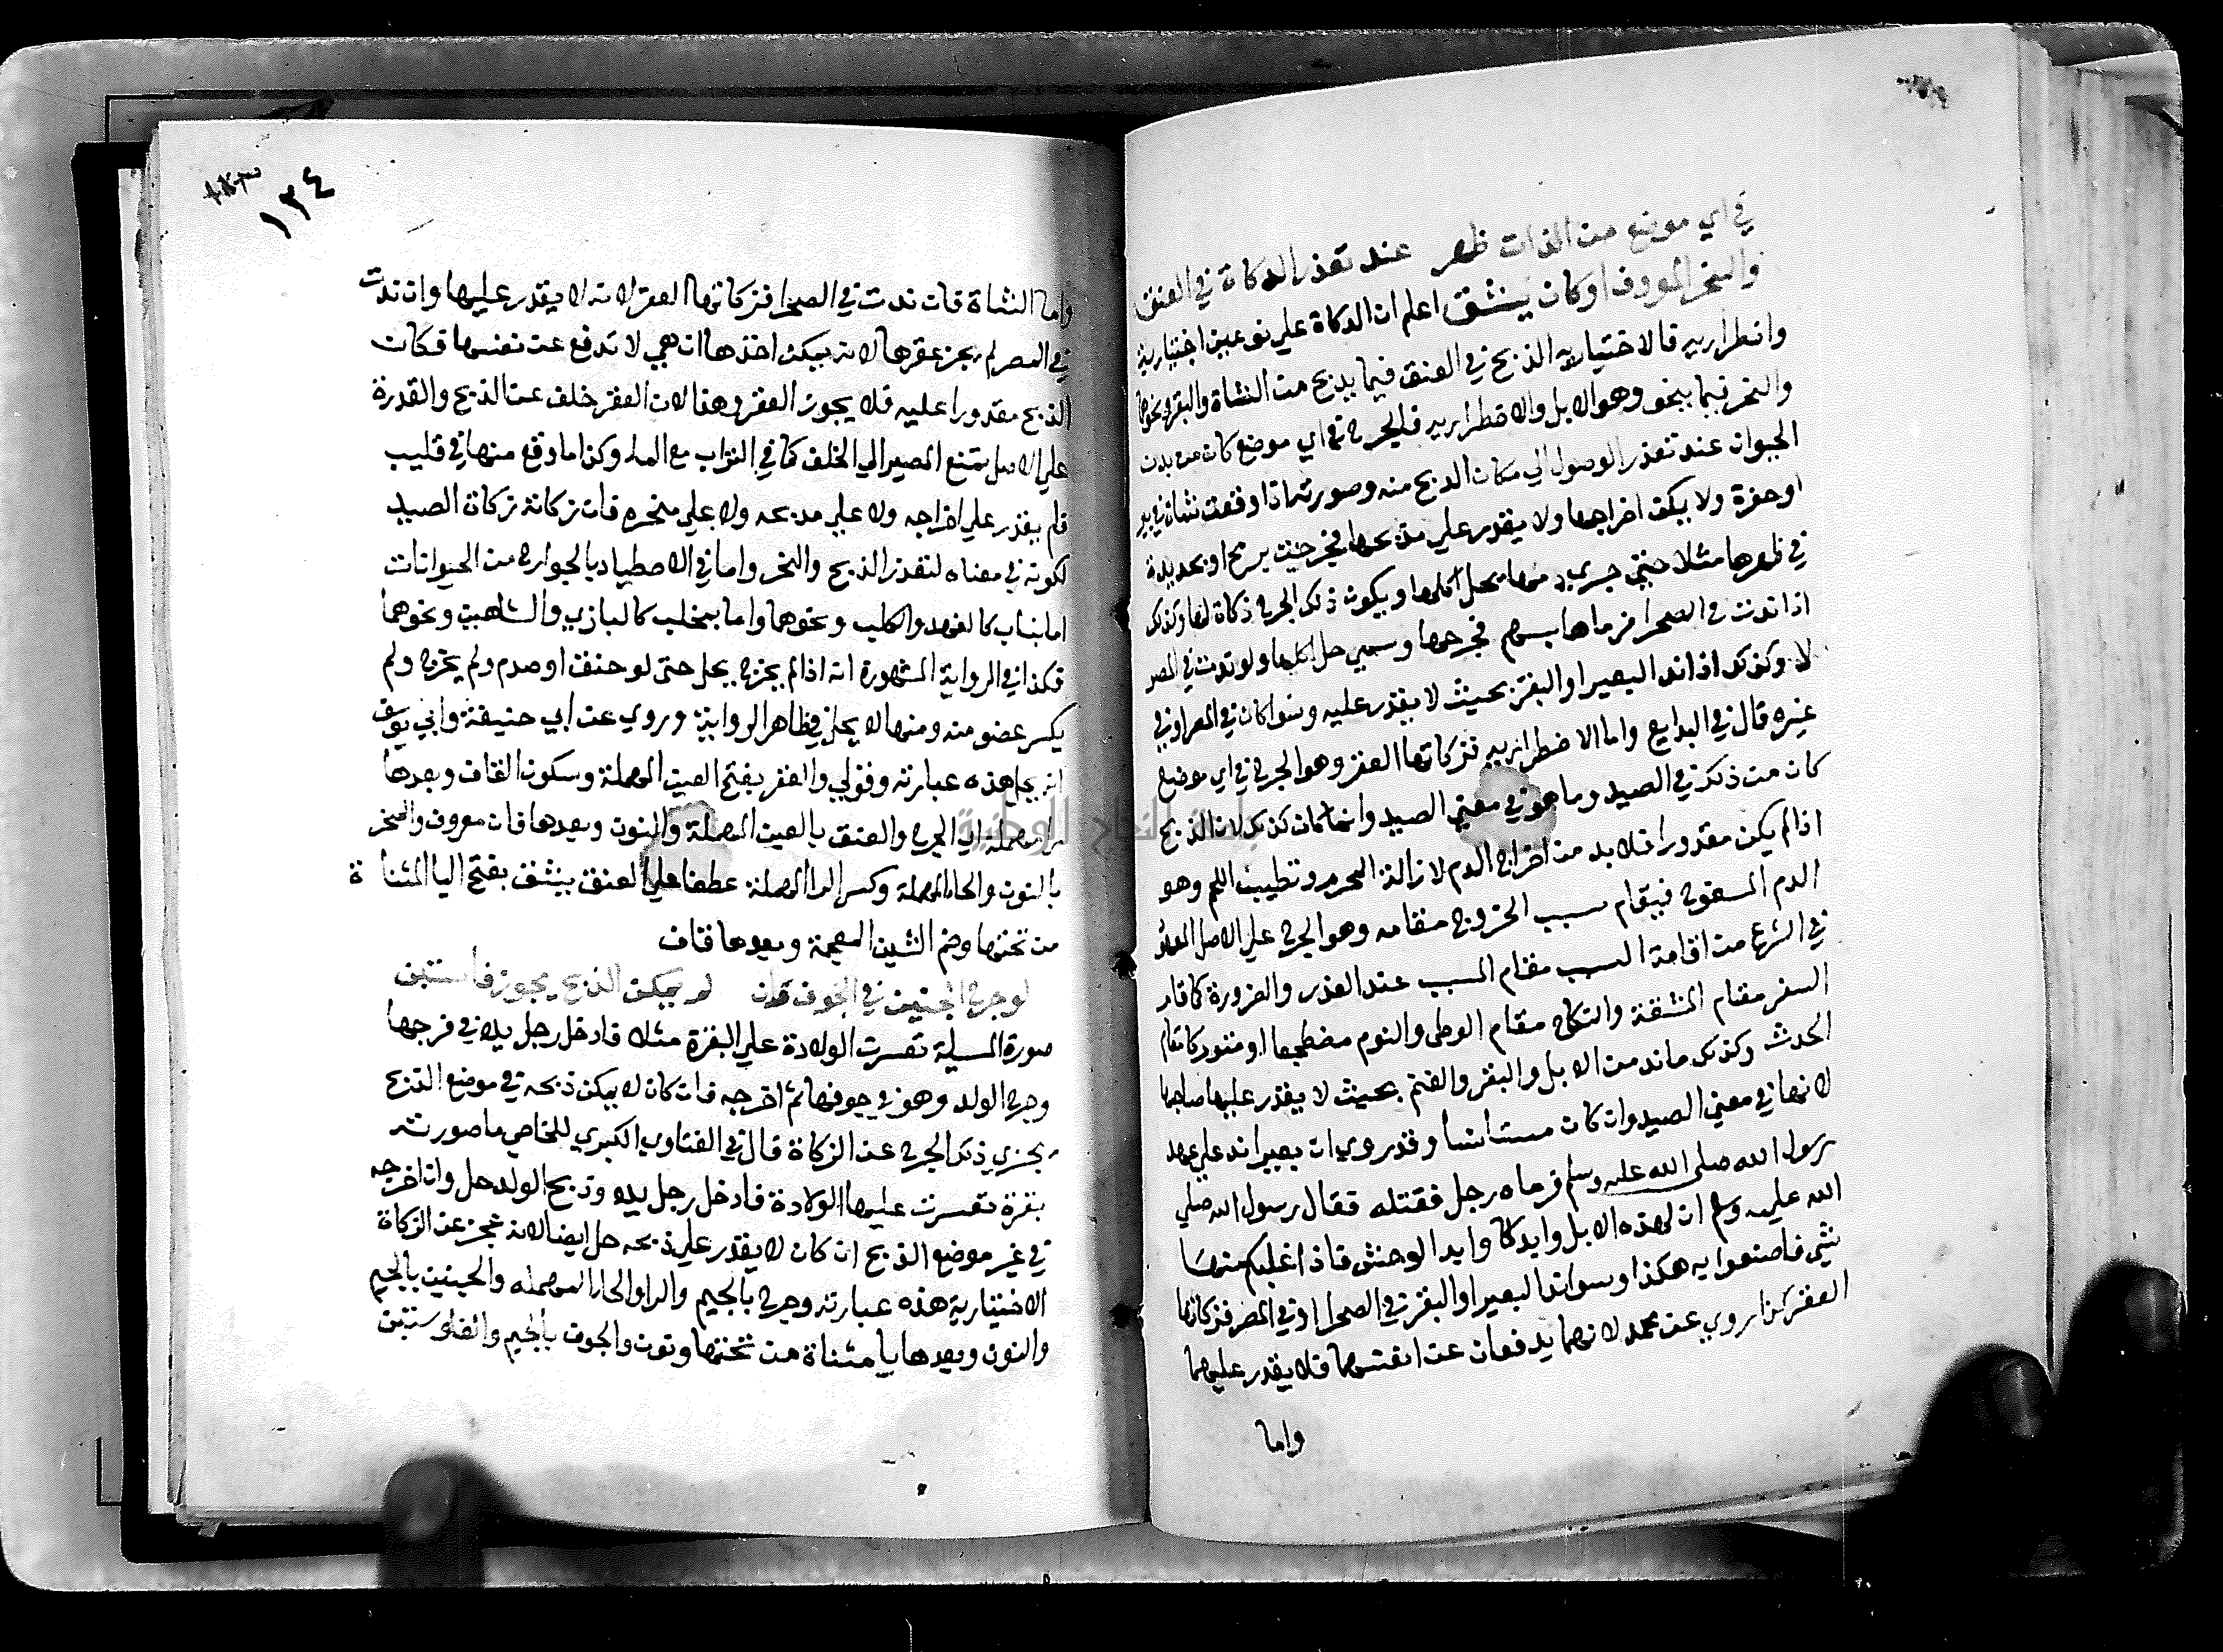 في اي موضع من الذات ظهر عند تعذر الدكاة في العنق
والنحر المعروف اوكان ينشق اعلم ان الدكاة علي نوعين اختيارية
واضطراريه فالاختياريه الذبح في العنق فيما يدبح من الشاة والبقر ونحوها
والنحر فيما ينحر وهو الابل والاضطراريه فالجرح في اي موضع كان من بدن
الحيوان عند تعذر الوصول الي مكان الدبح منه وصورته اذا وقعت شاة في بير
او حفرة ولا يمكن اخراجها ولا يقدر علي مذبحها فجرحت برمح او بحديدة
في ظهرها مثلا حتي جري دمها يحل اكلها ويكون ذلك الجرح ذكاة لها وكذلك
اذا ندت في الصحرا فرماها بسهم فجرحها وسمي حل اكلها ولو ندت في المصر
لا وكذلك اذا ند البعير او البقر بحيث لا يقدر عليه وسوا كان في المصر او في
غيره قال في البدايع واما الاضطراريه فزكاتها العقر وهو الجرح في اي موضع
كان من ذلك في الصيد وما هو في معني الصيد وانما كان كذلك لان الذبح
اذا لم يكن مقدورا فلا بد من اخراج الدم لازالة المحرم وتطييب اللحم وهو
الدم المسفوح فيقام سبب الخروج مقامه وهو الجرح علي الاصل المعهود
في الشرع من اقامة السبب مقام المسبب عند العذر والضرورة كما قام
السفر مقام المشقة والنكاح مقام الوطي والنوم مضطجعا او متوركا مقام
الحدث وكذلك ما ند من الابل والبقر والغنم بحيث لا يقدر عليها صاحبها
لانها في معني الصيد وان كان مستانسا وقد روي ان بعيرا ند علي عهد
رسول الله صلى الله عليه وسلم فرماه رجل فقتله فقال رسول الله صلي
الله عليه وسلم ان لهذه الابل وابدكا وابد الوحش فاذا غلبكم منها
شي فاصنعوا به هكذا وسواند البعير او البقر في الصحرا او في المصر فزكاتها
العقر كذا روي عن محمد لانهما يدفعان عن انفسهما فلا يقدر عليهما
واما
١٣٤
واما الشاة فان ندت في الصحرا فزكاتها العقر لانه لا يقدر عليها وان ندت
في المصر لم يجز عقرها لانه يمكن اخذها ان هي لا تدفع عن نفسها فكان
الذبح مقدورا عليه فلا يجوز العقر وهذا لان العقر خلف عن الذبح والقدرة
علي الاصل تمنع المصير الي الخلف كما في التراب مع الما وكذا ما وقع منها في قليب
فلم يقدر علي اخراجه ولا علي مدبحه ولا علي منحره فان زكاته زكاة الصيد
لكونه في معناه لتعذر الذبح والنحر واما في الاصطياد بالجوارح من الحيوانات
اما بناب كالفهد والكلب ونحوهما واما بمخلب كالبازي والشاهين ونحوهما
فكذا في الرواية المشهورة انه اذا لم يجرح يحل حتي لو خنق او صدم ولم يجرح ولم
يكسر عضو منه ومنها لا يحل في ظاهر الرواية وروي عن ابي حنيفة وابي يوسف
انه يحل هذه عبارته وقولي والعقر بفتح العين المهملة وسكون القاف وبعدها
را مهملة اي الجرح والعنق بالعين المهملة والنون وبعدها قاف معروف والنحر
بالنون والحا المهملة وكسر الرا المهملة عطفا علي العنق ينشق بفتح اليا المثناة
من تحتها وضم الشين المعجمة وبعدها قاف
لو جرح الجنين في الجوف فان لم يمكن الذبح يجوز فاستبن
صورة المسيلة تعسرت الولادة علي البقرة مثلا فادخل رجل يده في فرجها
وجرح الولد وهو في جوفها ثم اخرجه فان كان لا يمكن ذبحه في موضع الذبح
يجزي ذلك الجرح عن الزكاة قال في الفتاوي الكبري للخاصي ما صورته
بقرة تعسرت عليها الولادة فادخل رجل يده وذبح الولد حل وان اخرجه
في غير موضع الذبح ان كان لا يقدر علي ذبحه حل ايضا لانه عجز عن الزكاة
الاختيارية هذه عبارته وجرح بالجيم والرا والحا المهمله والجنين بالجيم
والنون وبعدها يا مثناة من تحتها ونون والجوف بالجيم والفا وستبن